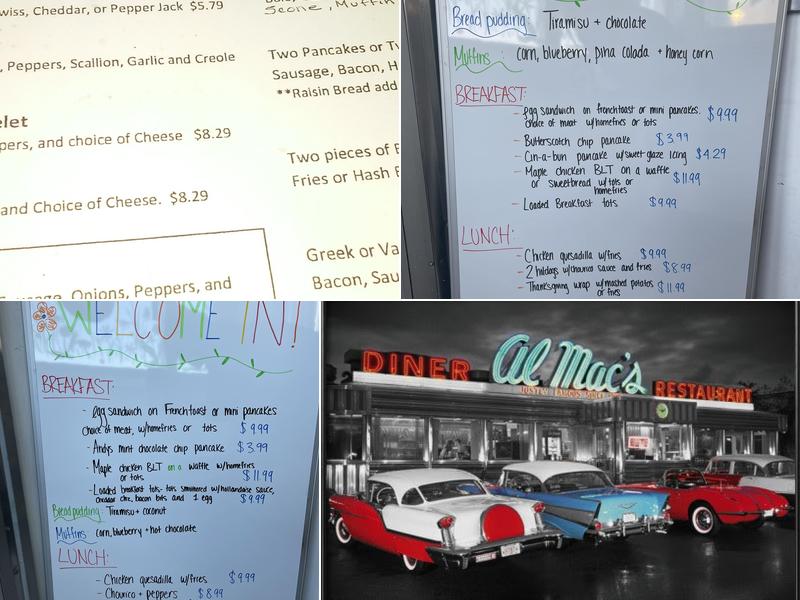 wiss, Cheddar, or Pepper Jack $5.79
, Peppers, Scallion, Garlic and Creole
elet
pers, and choice of Cheese $8.29
and Choice of Cheese. $8.29
Onions, Peppers, and
Scone, Muffin
Two Pancakes or Tw
Sausage, Bacon, H
**Raisin Bread add
Two pieces of F
Fries or Hash B
Greek or Va
Bacon, Sau
Bread pudding: Tiramisu + chocolate
Muffins: corn, blueberry, pina colada + honey corn
BREAKFAST:
- egg sandwich on frenchtoast or mini pancakes. $9.99
choice of meat w/homefries or tots
- Butterscotch chip pancake $3.99
- Cin-a-bun pancake w/sweet glaze icing $4.29
- Maple chicken BLT on a waffle
or sweetbread w/ tots or $11.99
homefries
- Loaded Breakfast tots $9.99
LUNCH:
- Chicken quesadilla w/fries $9.99
- 2 hotdogs w/chourico sauce and fries $8.99
- Thanksgiving wrap w/mashed potatos $11.99
or fries
WELCOME IN!
BREAKFAST:
- egg sandwich on Frenchtoast or mini pancakes
choice of meat, w/homefries or tots $9.99
- Andys mint chocolate chip pancake $3.99
- Maple chicken BLT on a waffle w/homefries
or tots $11.99
- Loaded breakfast tots- tots smothered w/hollandaise sauce,
cheddar chz, bacon bits and 1 egg $9.99
Bread pudding: Tiramisu + coconut
Muffins corn, blueberry + hot chocolate
LUNCH:
- Chicken quesadilla w/fries $9.99
- Chourico + peppers $8.99
DINER Al Mac's RESTAURANT